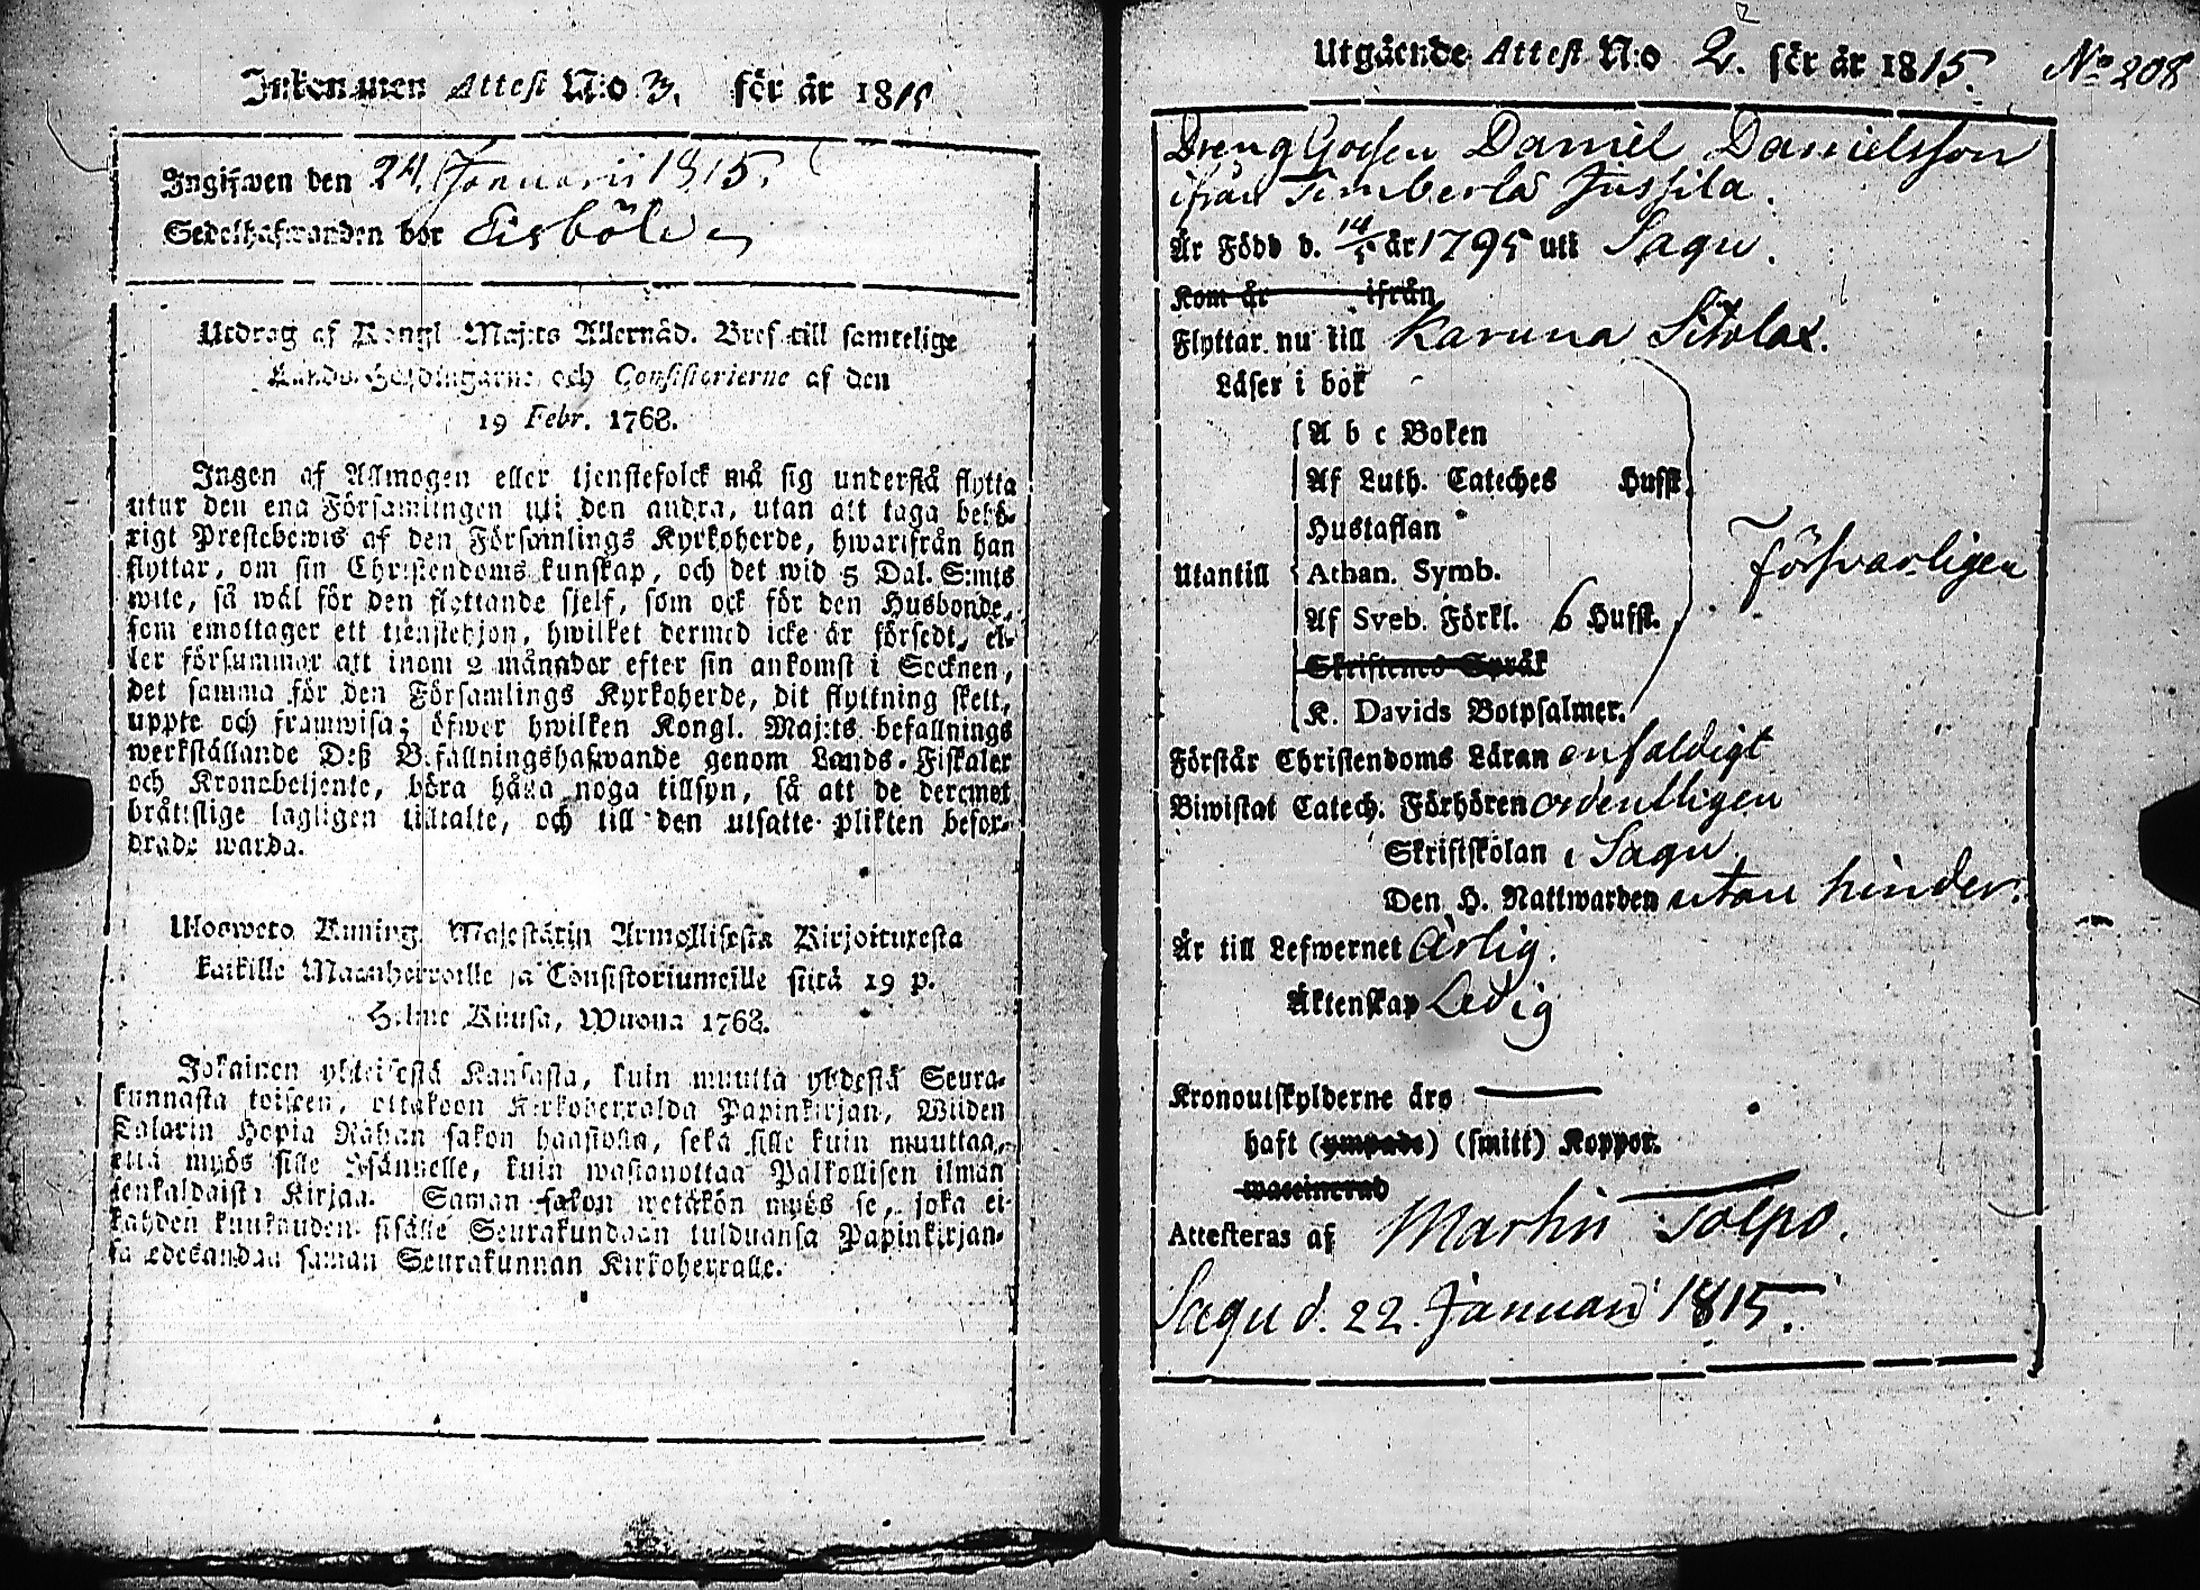 Inkommen Attest N:o 3. för år 1815
Ingifwen den 24. Januarii 1815.
Sedelhafwanden bor
Utdrag af Kongl. Maj:ts Allernåd. Bref till samtelige
Lands-Höfdingarne och Consistorierne af den
19 Febr. 1768.
Ingen af Allmogen eller tjenstefolck må sig understå flytta
utur den ena Församlingen uti den andra, utan att taga behö-
rigt Prestebewis af den Församlings Kyrkoherde, hwarifrån han
flyttar, om sin Christendoms kunskap, och det wid 5 Dal. S:mts
wite, så wäl för den flyttande sjelf, som ock för den Husbonde,
som emottager ett tjenstehjon, hwilket dermed icke är försedt, el-
ler försummar att inom 2 månader efter sin ankomst i Socknen,
det samma för den Församlings Kyrkoherde, dit flyttning skett,
uppte och framwisa; öfwer hwilken Kongl. Maj:ts befallnings
werkställande Deß Befallningshafwande genom Lands-Fiskaler
och Kronobetjente, böra hålla noga tillsyn, så att de deremot
bråttslige lagligen tilltalte, och till den utsatte plikten befor-
drade warda.
Ulosweto Kuning. Majestätin Armollisesta Kirjoituxesta
kaikille Maanherroille ja Consistoriumeille siitä 19 p.
Helme Kuusa, Wuona 1768.
Jokainen yhteisestä Kansasta, kuin muutta yhdestä Seura-
kunnasta toiseen, ottakoon Kirkoherralda Papinkirjan, Wiiden
Talarin Hopia Rahan sakon haastolla, sekä sille kuin muuttaa,
että myös sille Isännelle, kuin wastanottaa Palkollisen ilman
senkaldaista Kirjaa. Saman sakon wetäkön myös se, joka ei
kahden kuukauden sisälle Seurakundaan tulduansa Papinkirjan-
sa edesandaa saman Seurakunnan Kirkoherralle.
Utgående Attest N:o 2. för år 1815. No 208
Dreng Gossen Daniel Danielsson
ifrån Timberla Jussila.
Är Född d. 14/5 år 1795 uti Sagu.
Kom år ifrån
Flyttar nu till Karuna Sitolax.
Läser i bok
A b c Boken
Af Luth. Cateches Hufst.
Hustaflan
Utantill Athan. Symb. försvarligen
Af Sveb. Förkl. 6 Hufst.
Skriftenes Språk
K. Davids Botpsalmer.
Förstår Christendoms Läran enfaldigt
Biwistat Catech. Förhören ordentligen
Skriftskolan i Sagu
Den H. Nattwarden utan hinder.
Är till Lefwernet ärlig.
Äktenskap Ledig
Kronoutskylderne äro
haft (ympade) (smitt) Koppor.
waccinerad
Attesteras af Martin Tolpo.
Sagu d. 22. Januari 1815.